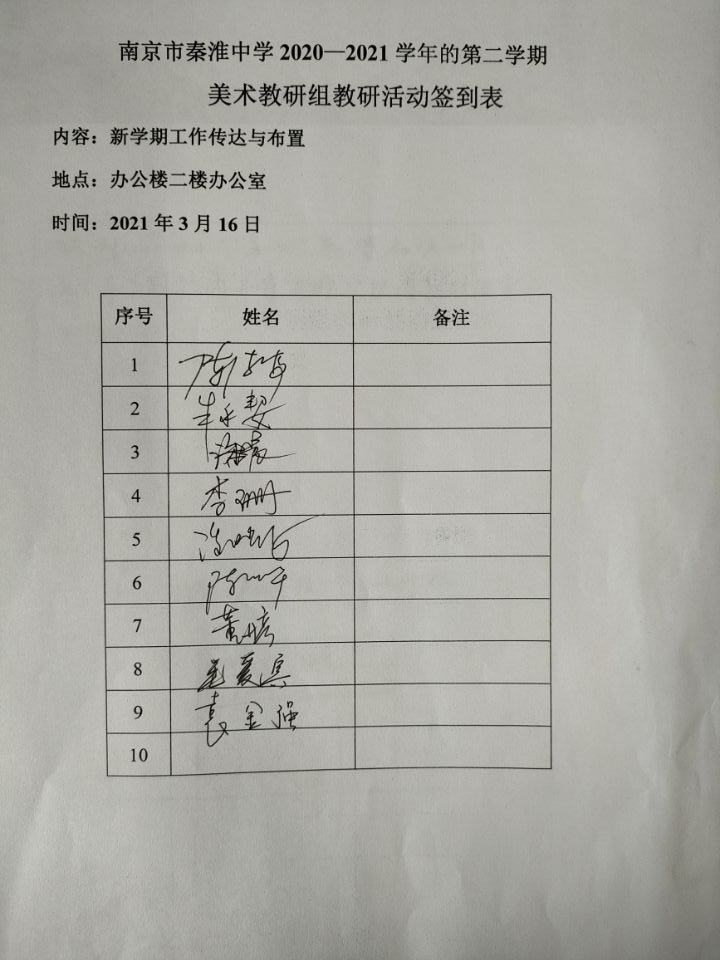 南京市秦淮中学 2020—2021 学年的第二学期
美术教研组教研活动签到表
内容：新学期工作传达与布置
地点：办公楼二楼办公室
时间：2021 年 3 月 16 日
序号 姓名 备注
1
2
3
4 李珊珊
5
6 陈
7 黄
8 爱
9 袁金强
10